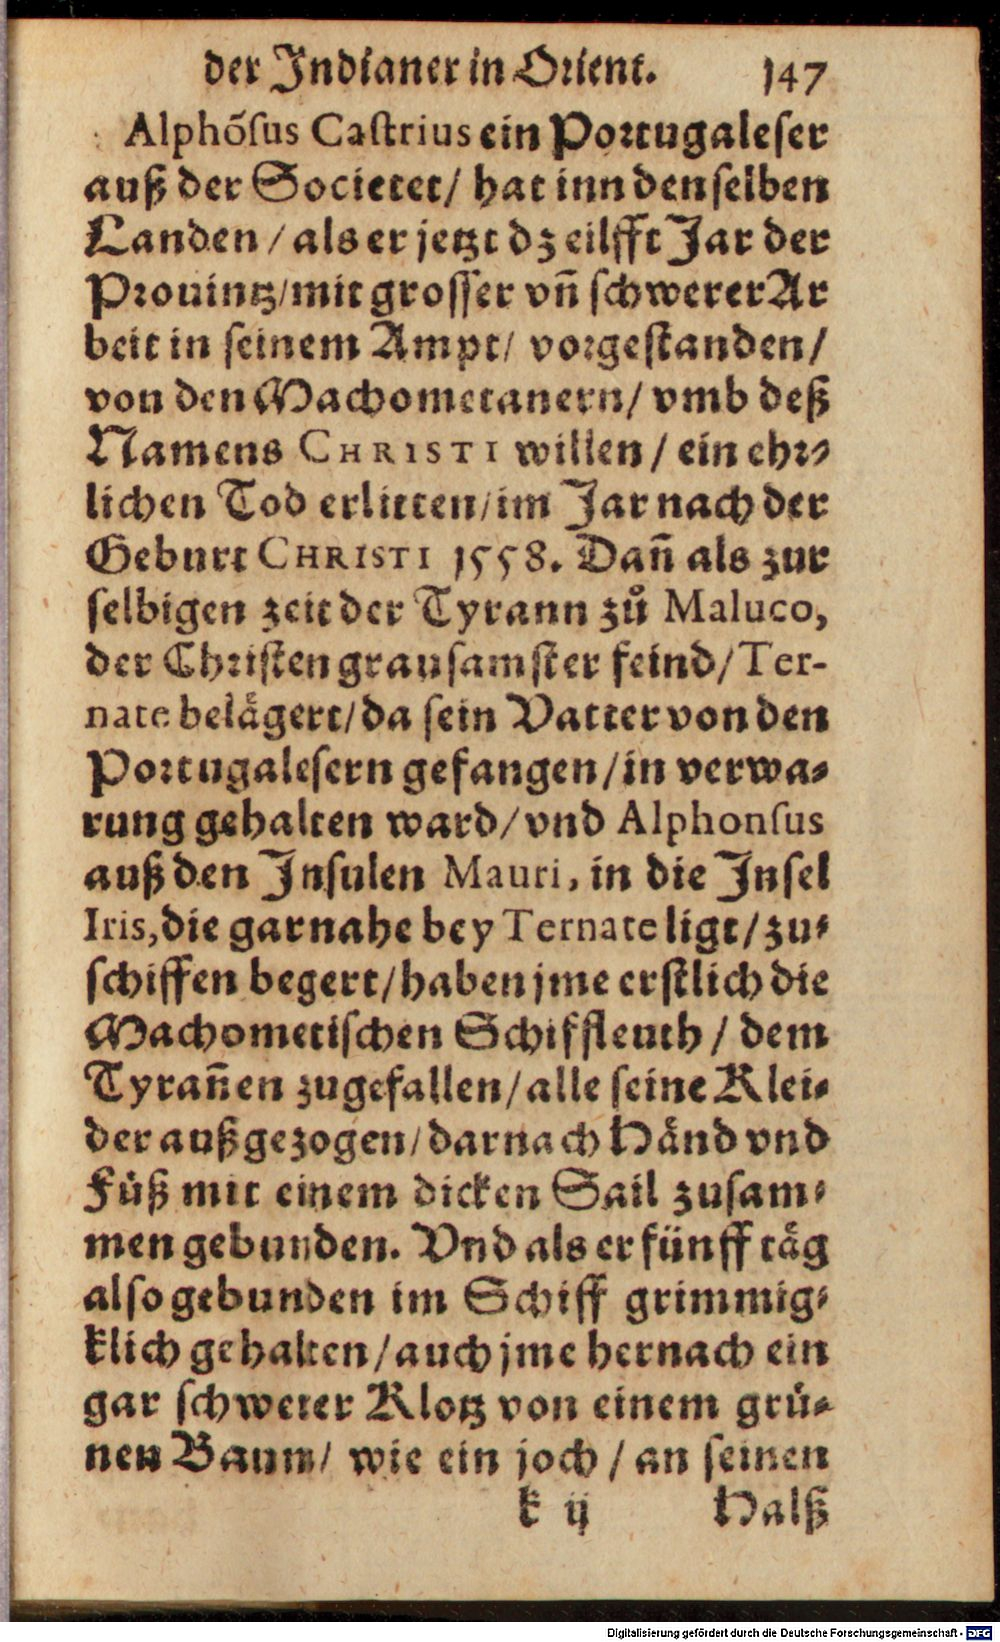 der Indianer in Orient. 147
Alphõsus Castrius ein Portugaleser
auß der Societet/ hat inn denselben
Landen / als er jetzt dz eilfft Jar der
Prouintz/mit grosser vñ schwerer Ar
beit in seinem Ampt/ vorgestanden/
von den Machometanern/ vmb deß
Namens CHRISTI willen / ein ehr-
lichen Tod erlitten/im Jar nach der
Geburt CHRISTI 1558. Dañ als zur
selbigen zeit der Tyrann zů Maluco,
der Christen grausamster feind/Ter-
nate belägert/da sein Vatter von den
Portugalesern gefangen/in verwa-
rung gehalten ward/vnd Alphonsus
auß den Insulen Mauri, in die Insel
Iris,die gar nahe bey Ternate ligt/zu-
schiffen begert/haben jme erstlich die
Machometischen Schiffleuth / dem
Tyrañen zugefallen/alle seine Klei-
der außgezogen/darnach Händ vnd
Füß mit einem dicken Sail zusam-
men gebunden. Vnd als er fünff täg
also gebunden im Schiff grimmig-
klich gehalten/auch jme hernach ein
gar schwerer Klotz von einem grü-
nen Baum/ wie ein joch / an seinen
k ij Halß
Digitalisierung gefördert durch die Deutsche Forschungsgemeinschaft - DFG